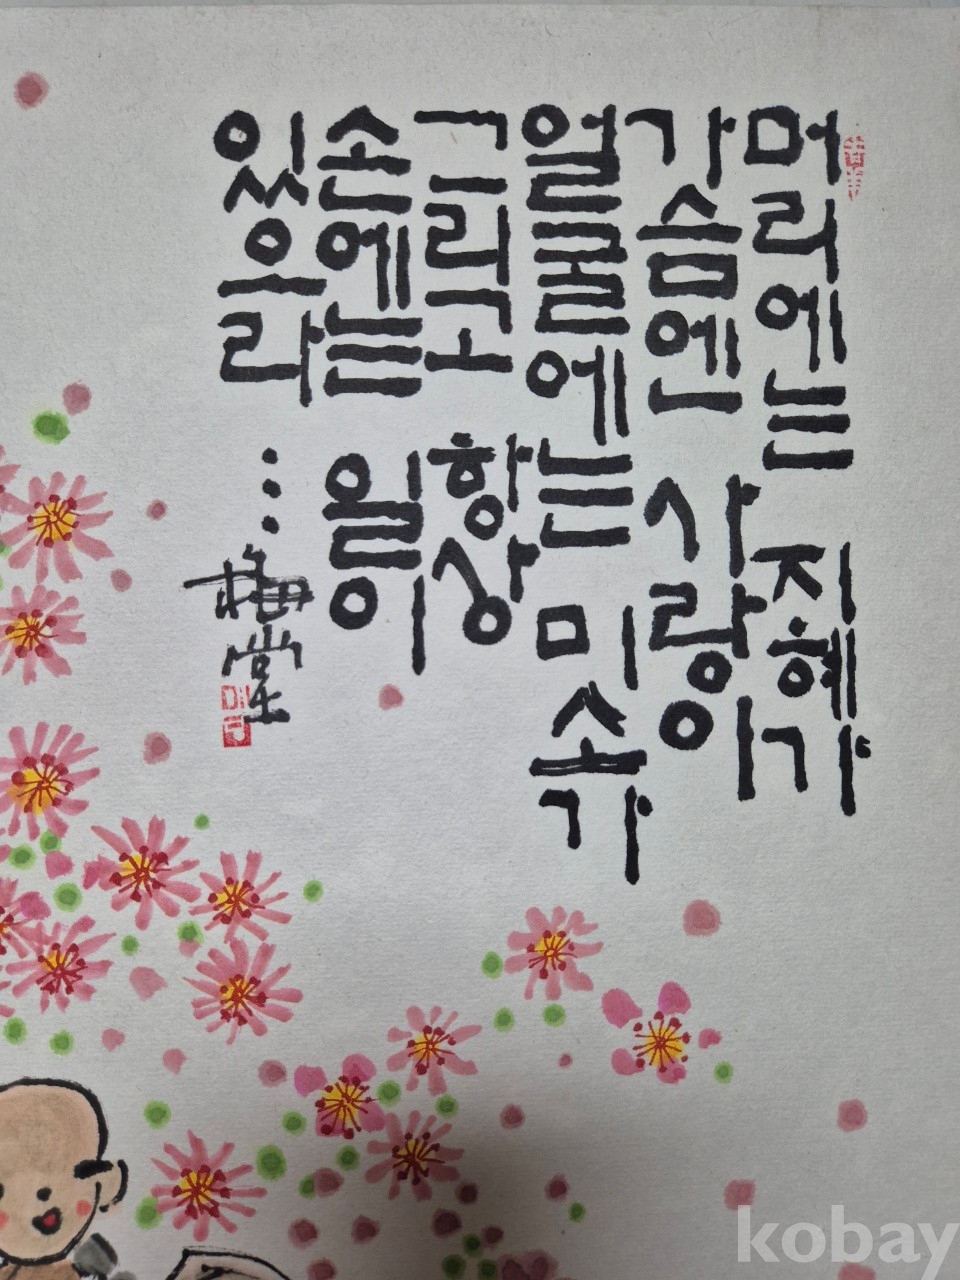 머리에는 지혜가
가슴엔 사랑이
얼굴에는 미소가
그리고 항상
손에는 일이
있으라 ...
梅堂
kobay